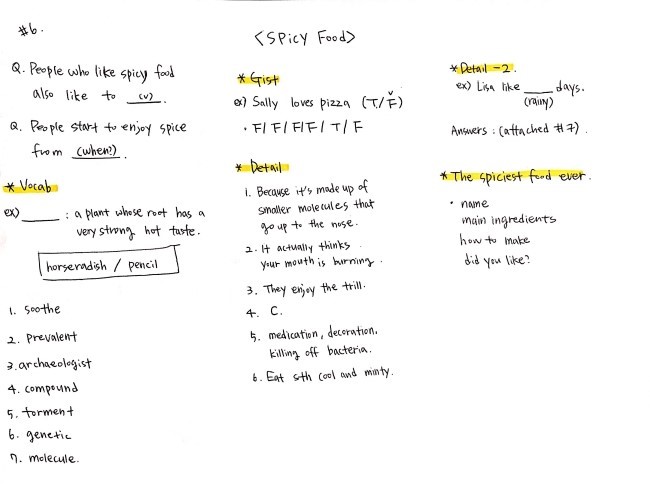 #6.
<SPicy Food>
Q. People who like spicy food
also like to (v).
Q. People start to enjoy spice
from (when?).
* Vocab
ex) ______ : a plant whose root has a
very strong hot taste.
horseradish / pencil
1. soothe
2. prevalent
3. archaeologist
4. compound
5. torment
6. genetic
7. molecule.
* Gist
ex) Sally loves pizza (T/F)
• F/ F/ F/F/ T/ F
* Detail
1. Because it's made up of
smaller molecules that
go up to the nose.
2. It actually thinks
your mouth is burning.
3. They enjoy the trill.
4. C.
5. medication, decoration,
killing off bacteria.
6. Eat sth cool and minty.
* Detail -2.
ex) Lisa like ____ days.
(rainy)
Answers : (attached #7).
* The spiciest food ever.
• name
main ingredients
how to make
did you like?